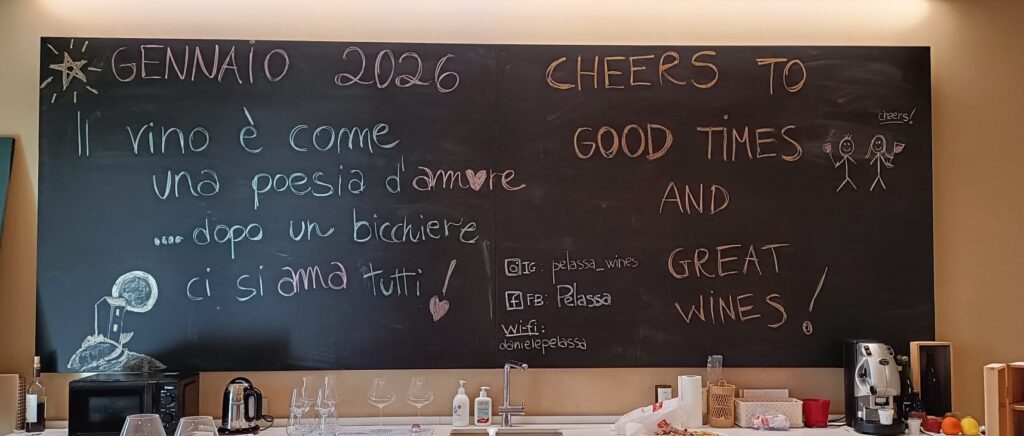 GENNAIO 2026
Il vino è come
una poesia d'amore
....dopo un bicchiere
ci si ama tutti!
CHEERS TO
GOOD TIMES
AND
GREAT
WINES!
cheers!
IG: pelassa_wines
FB: Pelassa
Wi-fi:
danielepelassa